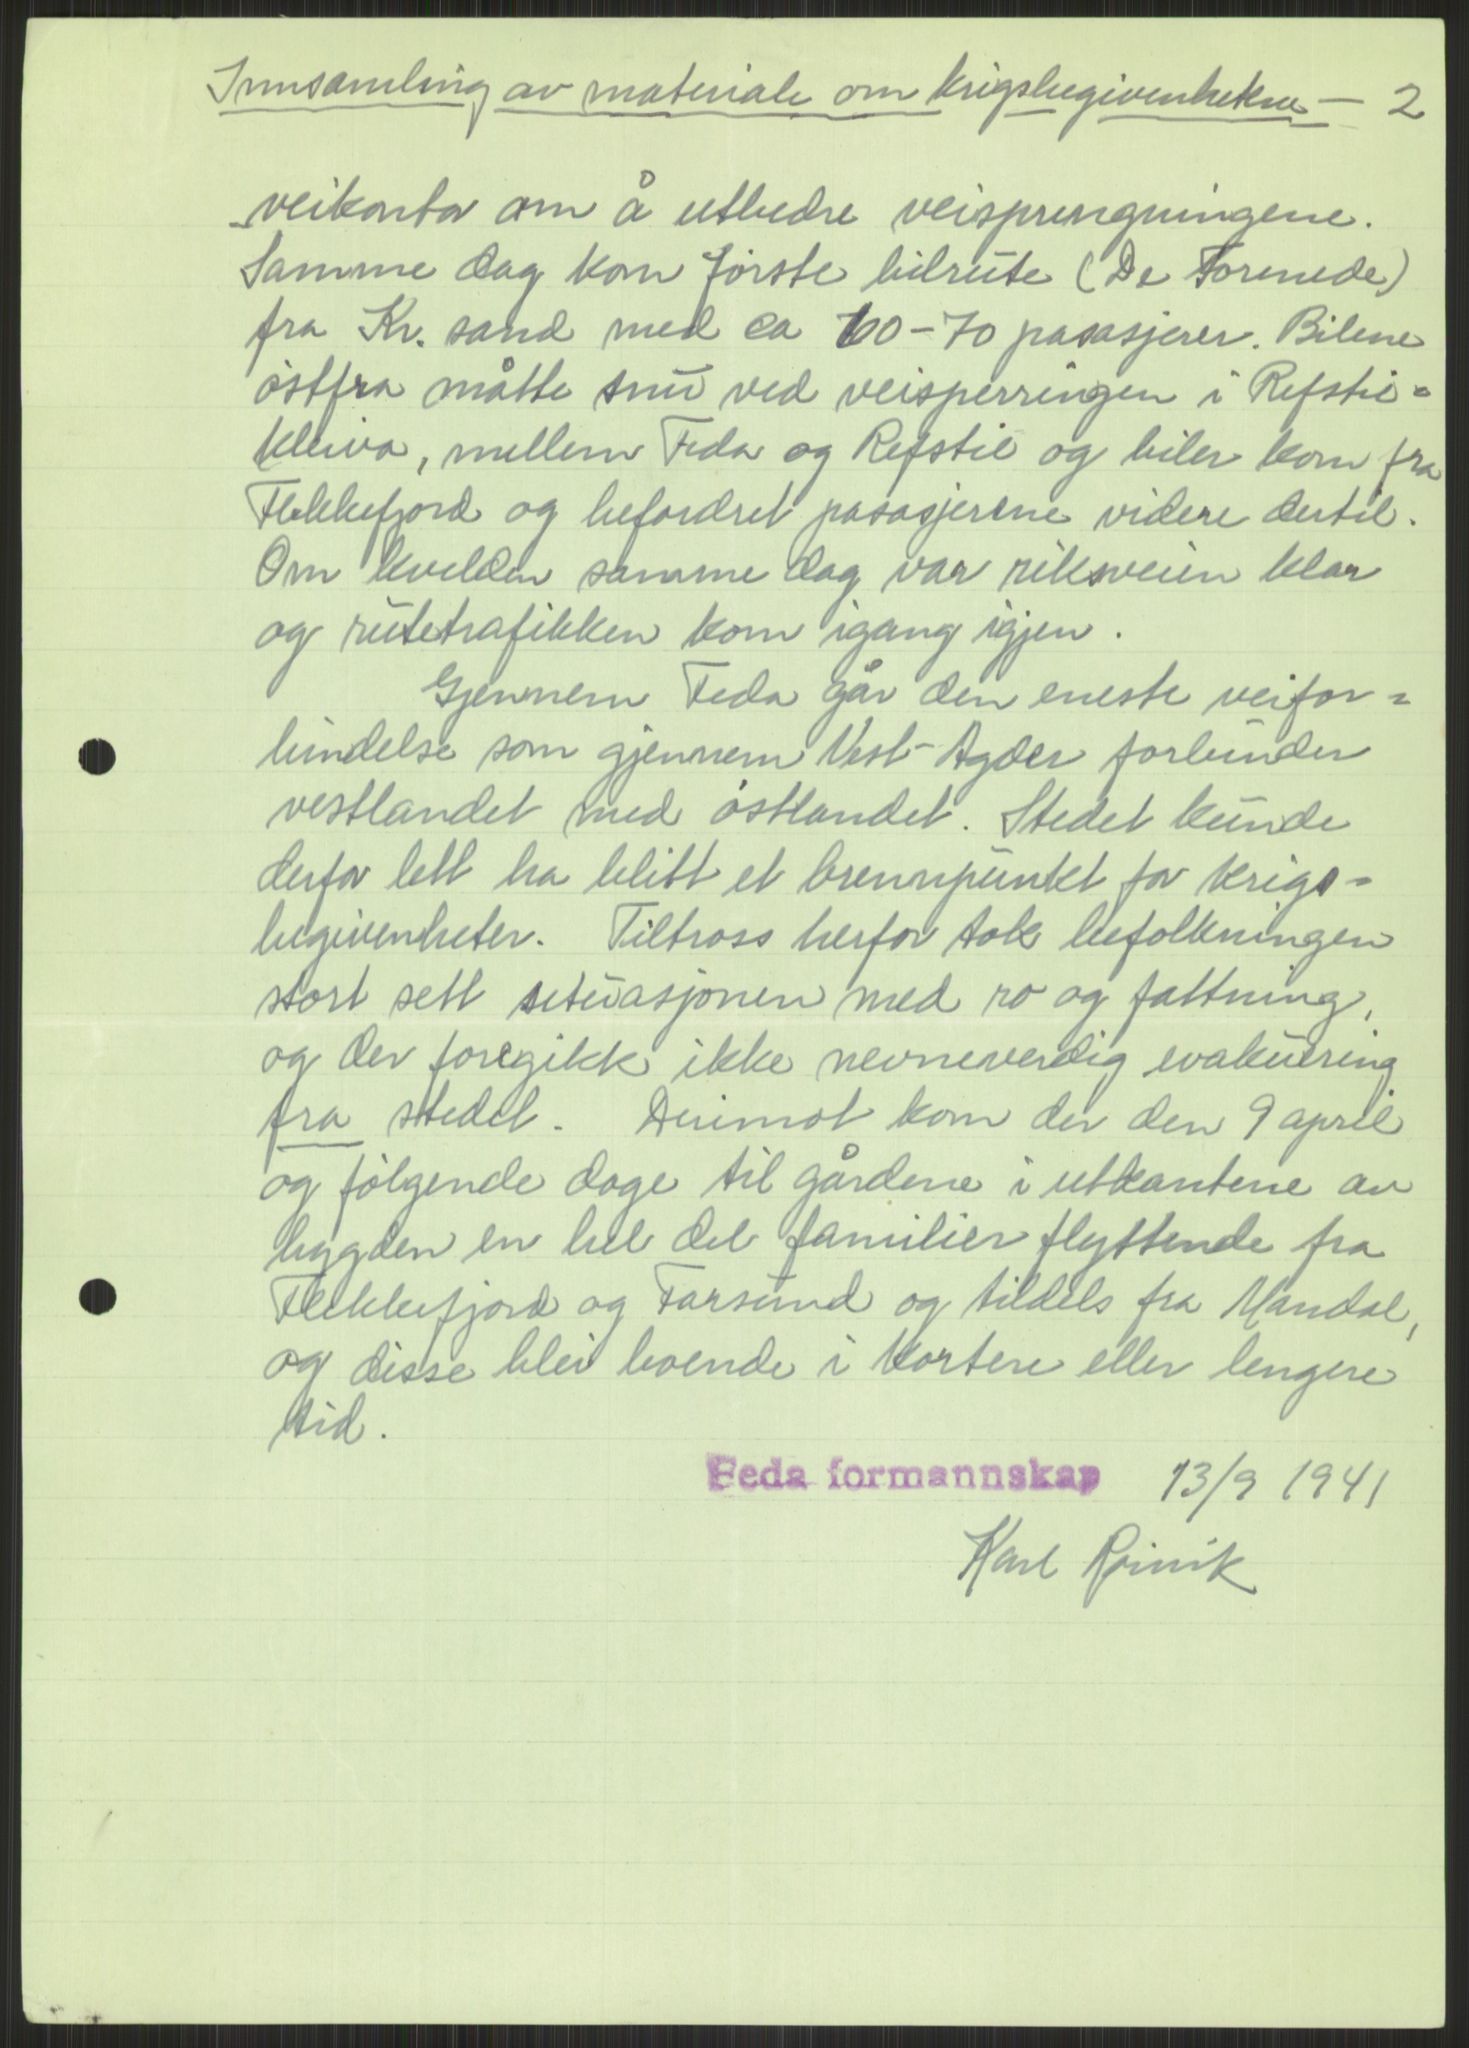 Innsamling av materiale om krigsbegivenhetene — 2
veikontor om å utbedre veisprengningene.
Samme dag kom første bilrute (De Forenede)
fra Kr. sand med ca 60-70 pasasjerer. Bilene
østfra måtte snu ved veisperringen i Refstie-
kleiva, mellem Feda og Refstie og biler kom fra
Flekkefjord og befordret pasasjerene videre dertil.
Om kvelden samme dag var riksveien klar
og rutetrafikken kom igang igjen.
Gjennem Feda går den eneste veifor-
bindelse som gjennem Vest-Agder forbinder
vestlandet med østlandet. Stedet kunde
derfor lett ha blitt et brennpunkt for krigs-
begivenheter. Tiltross herfor tok befolkningen
stort sett situasjonen med ro og fattning,
og der foregikk ikke nevneverdig evakuering
fra stedet. Derimot kom der den 9 april
og følgende dage til gårdene i utkantene av
bygden en hel del familier flyttende fra
Flekkefjord og Farsund og tildels fra Mandal,
og disse blev boende i kortere eller lengere
tid.
Feda formannskap 13/9 1941
Karl